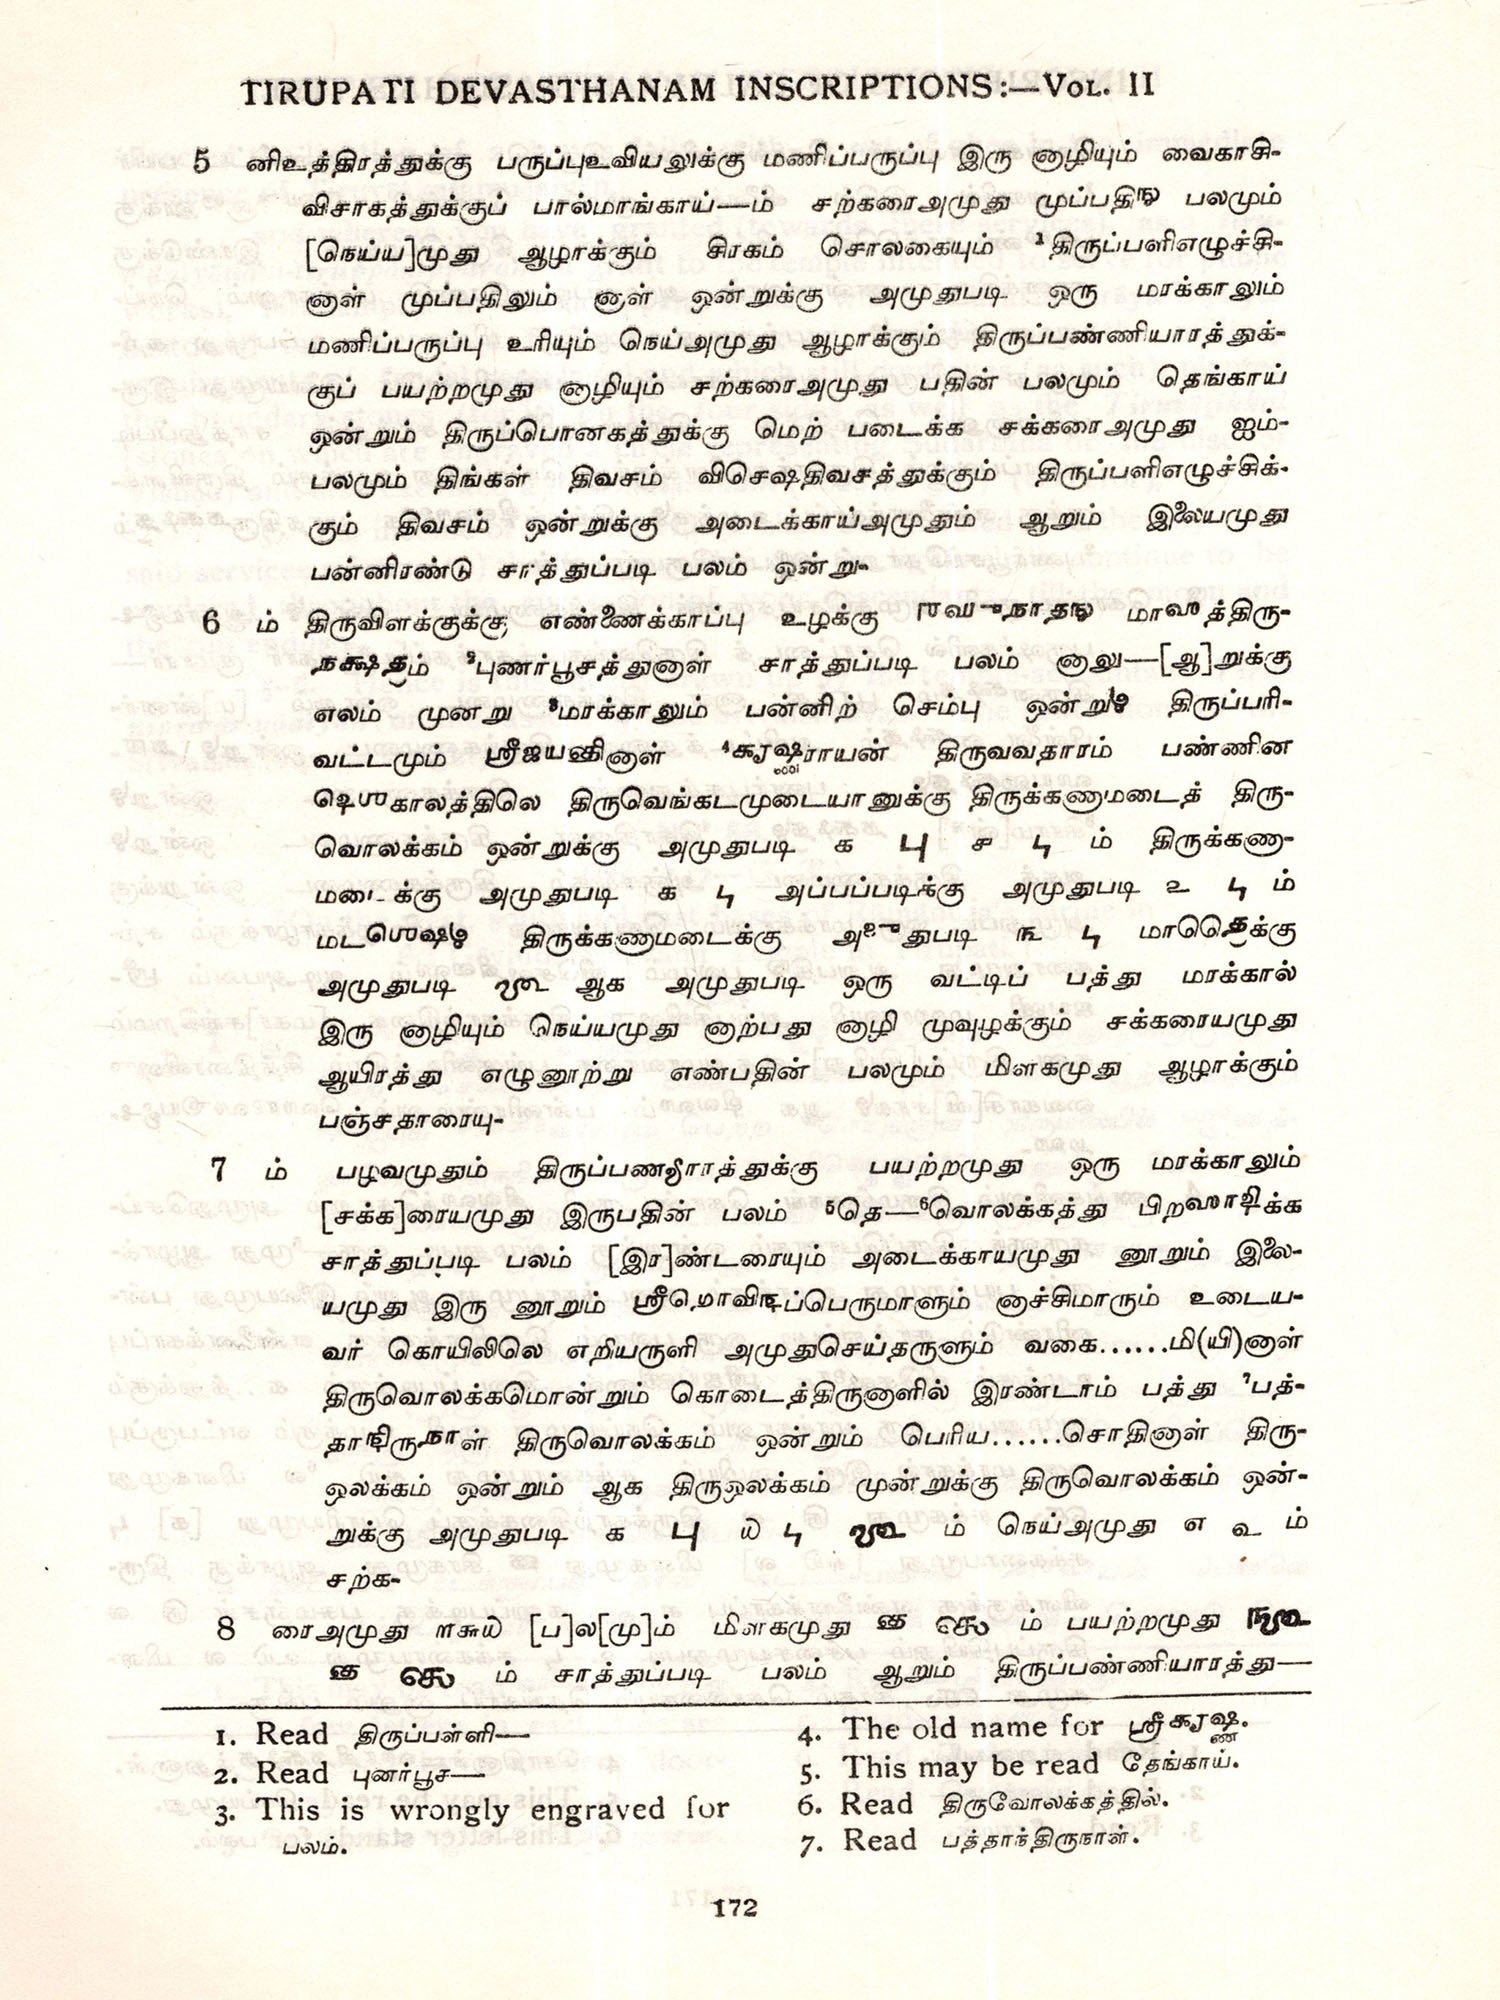 TIRUPATI DEVASTHANAM INSCRIPTIONS:—VOL. II
5 னிஉத்திரத்துக்கு பருப்புஉவியலுக்கு மணிப்பருப்பு இரு னாழியும் வைகாசி-
விசாகத்துக்குப் பால்மாங்காய்—ம் சற்கரைஅமுது முப்பதின் பலமும்
[நெய்ய]முது ஆழாக்கும் சிரகம் சொலகையும் ¹திருப்பளிஎழுச்சி-
னாள் முப்பதிலும் னாள் ஒன்றுக்கு அமுதுபடி ஒரு மரக்காலும்
மணிப்பருப்பு உரியும் நெய்அமுது ஆழாக்கும் திருப்பண்ணியாரத்துக்-
குப் பயற்றமுது னாழியும் சற்கரைஅமுது பதின் பலமும் தெங்காய்
ஒன்றும் திருப்பொனகத்துக்கு மெற் படைக்க சக்கரைஅமுது ஐம்-
பலமும் திங்கள் திவசம் விசெஷதிவசத்துக்கும் திருப்பளிஎழுச்சிக்-
கும் திவசம் ஒன்றுக்கு அடைக்காய்அமுதும் ஆறும் இலையமுது
பன்னிரண்டு சாத்துப்படி பலம் ஒன்று-
6 ம் திருவிளக்குக்கு எண்ணைக்காப்பு உழக்கு மாஹத்திரு-
நக்ஷத்ரம் ²புணர்பூசத்துனாள் சாத்துப்படி பலம் னாலு—[ஆ]றுக்கு
எலம் முனறு ³மரக்காலும் பன்னிற் செம்பு ஒன்று திருப்பரி-
வட்டமும் ஸ்ரீஜயந்தினாள் ⁴க்ருஷ்ணராயன் திருவவதாரம் பண்ணின
காலத்திலெ திருவெங்கடமுடையானுக்கு திருக்கணாமடைத் திரு-
வொலக்கம் ஒன்றுக்கு அமுதுபடி ௧ ௪ ம் திருக்கணா-
மடைக்கு அமுதுபடி ௧ அப்பப்படிக்கு அமுதுபடி ௨ ம்
திருக்கணாமடைக்கு அமுதுபடி ௩ மாத்ரைக்கு
அமுதுபடி ஆக அமுதுபடி ஒரு வட்டிப் பத்து மரக்கால்
இரு னாழியும் நெய்யமுது னாற்பது னாழி முவுழக்கும் சக்கரையமுது
ஆயிரத்து எழுனூற்று எண்பதின் பலமும் மிளகமுது ஆழாக்கும்
பஞ்சதாரையு-
7 ம் பழவமுதும் பயற்றமுது ஒரு மரக்காலும்
[சக்க]ரையமுது இருபதின் பலம் ⁵தெ—⁶வொலக்கத்து பிறஸாதிக்க
சாத்துப்படி பலம் [இர]ண்டரையும் அடைக்காயமுது னூறும் இலை-
யமுது இரு னூறும் ஸ்ரீமொவிந்தப்பெருமாளும் னாச்சிமாரும் உடைய-
வர் கொயிலிலெ எறியருளி அமுதுசெய்தருளும் வகை......மி(யி)னாள்
திருவொலக்கமொன்றும் கொடைத்திருனாளில் இரண்டாம் பத்து ⁷பத்-
தாந்திருநாள் திருவொலக்கம் ஒன்றும் பெரிய......சொதினாள் திரு-
ஒலக்கம் ஒன்றும் ஆக திருஒலக்கம் முன்றுக்கு திருவொலக்கம் ஒன்-
றுக்கு அமுதுபடி ௧ ம் நெய்அமுது ௭ ம்
சற்க-
8 ரைஅமுது ௱௬௰ [ப]ல[மு]ம் மிளகமுது ம் பயற்றமுது
ம் சாத்துப்படி பலம் ஆறும் திருப்பண்ணியாரத்து—
1. Read திருப்பள்ளி—
2. Read புனர்பூச—
3. This is wrongly engraved for
பலம்.
4. The old name for ஸ்ரீக்ருஷ்ண.
5. This may be read தேங்காய்.
6. Read திருவோலக்கத்தில்.
7. Read பத்தாந்திருநாள்.
172